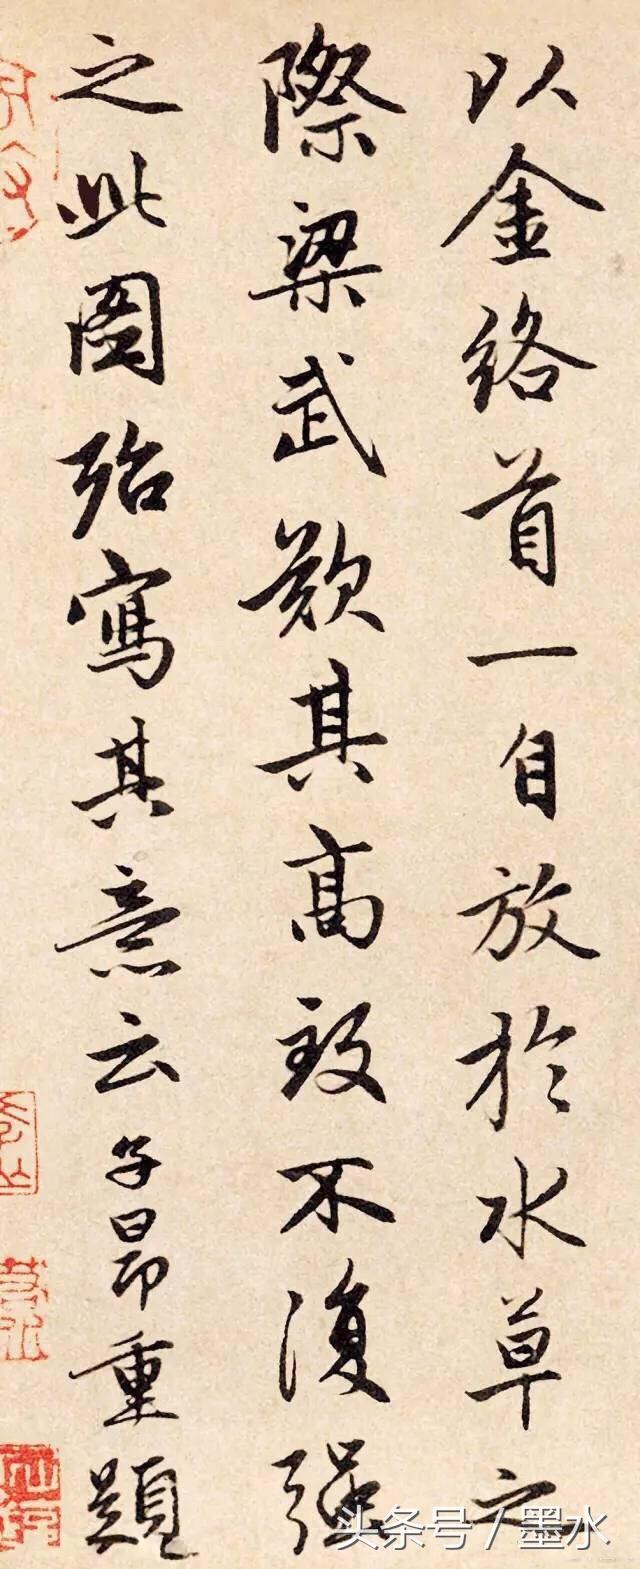 以金络首一自放於水草之
際梁武欽其高致不復强
之此圖殆寫其意云子昂重題
头条号 / 墨水